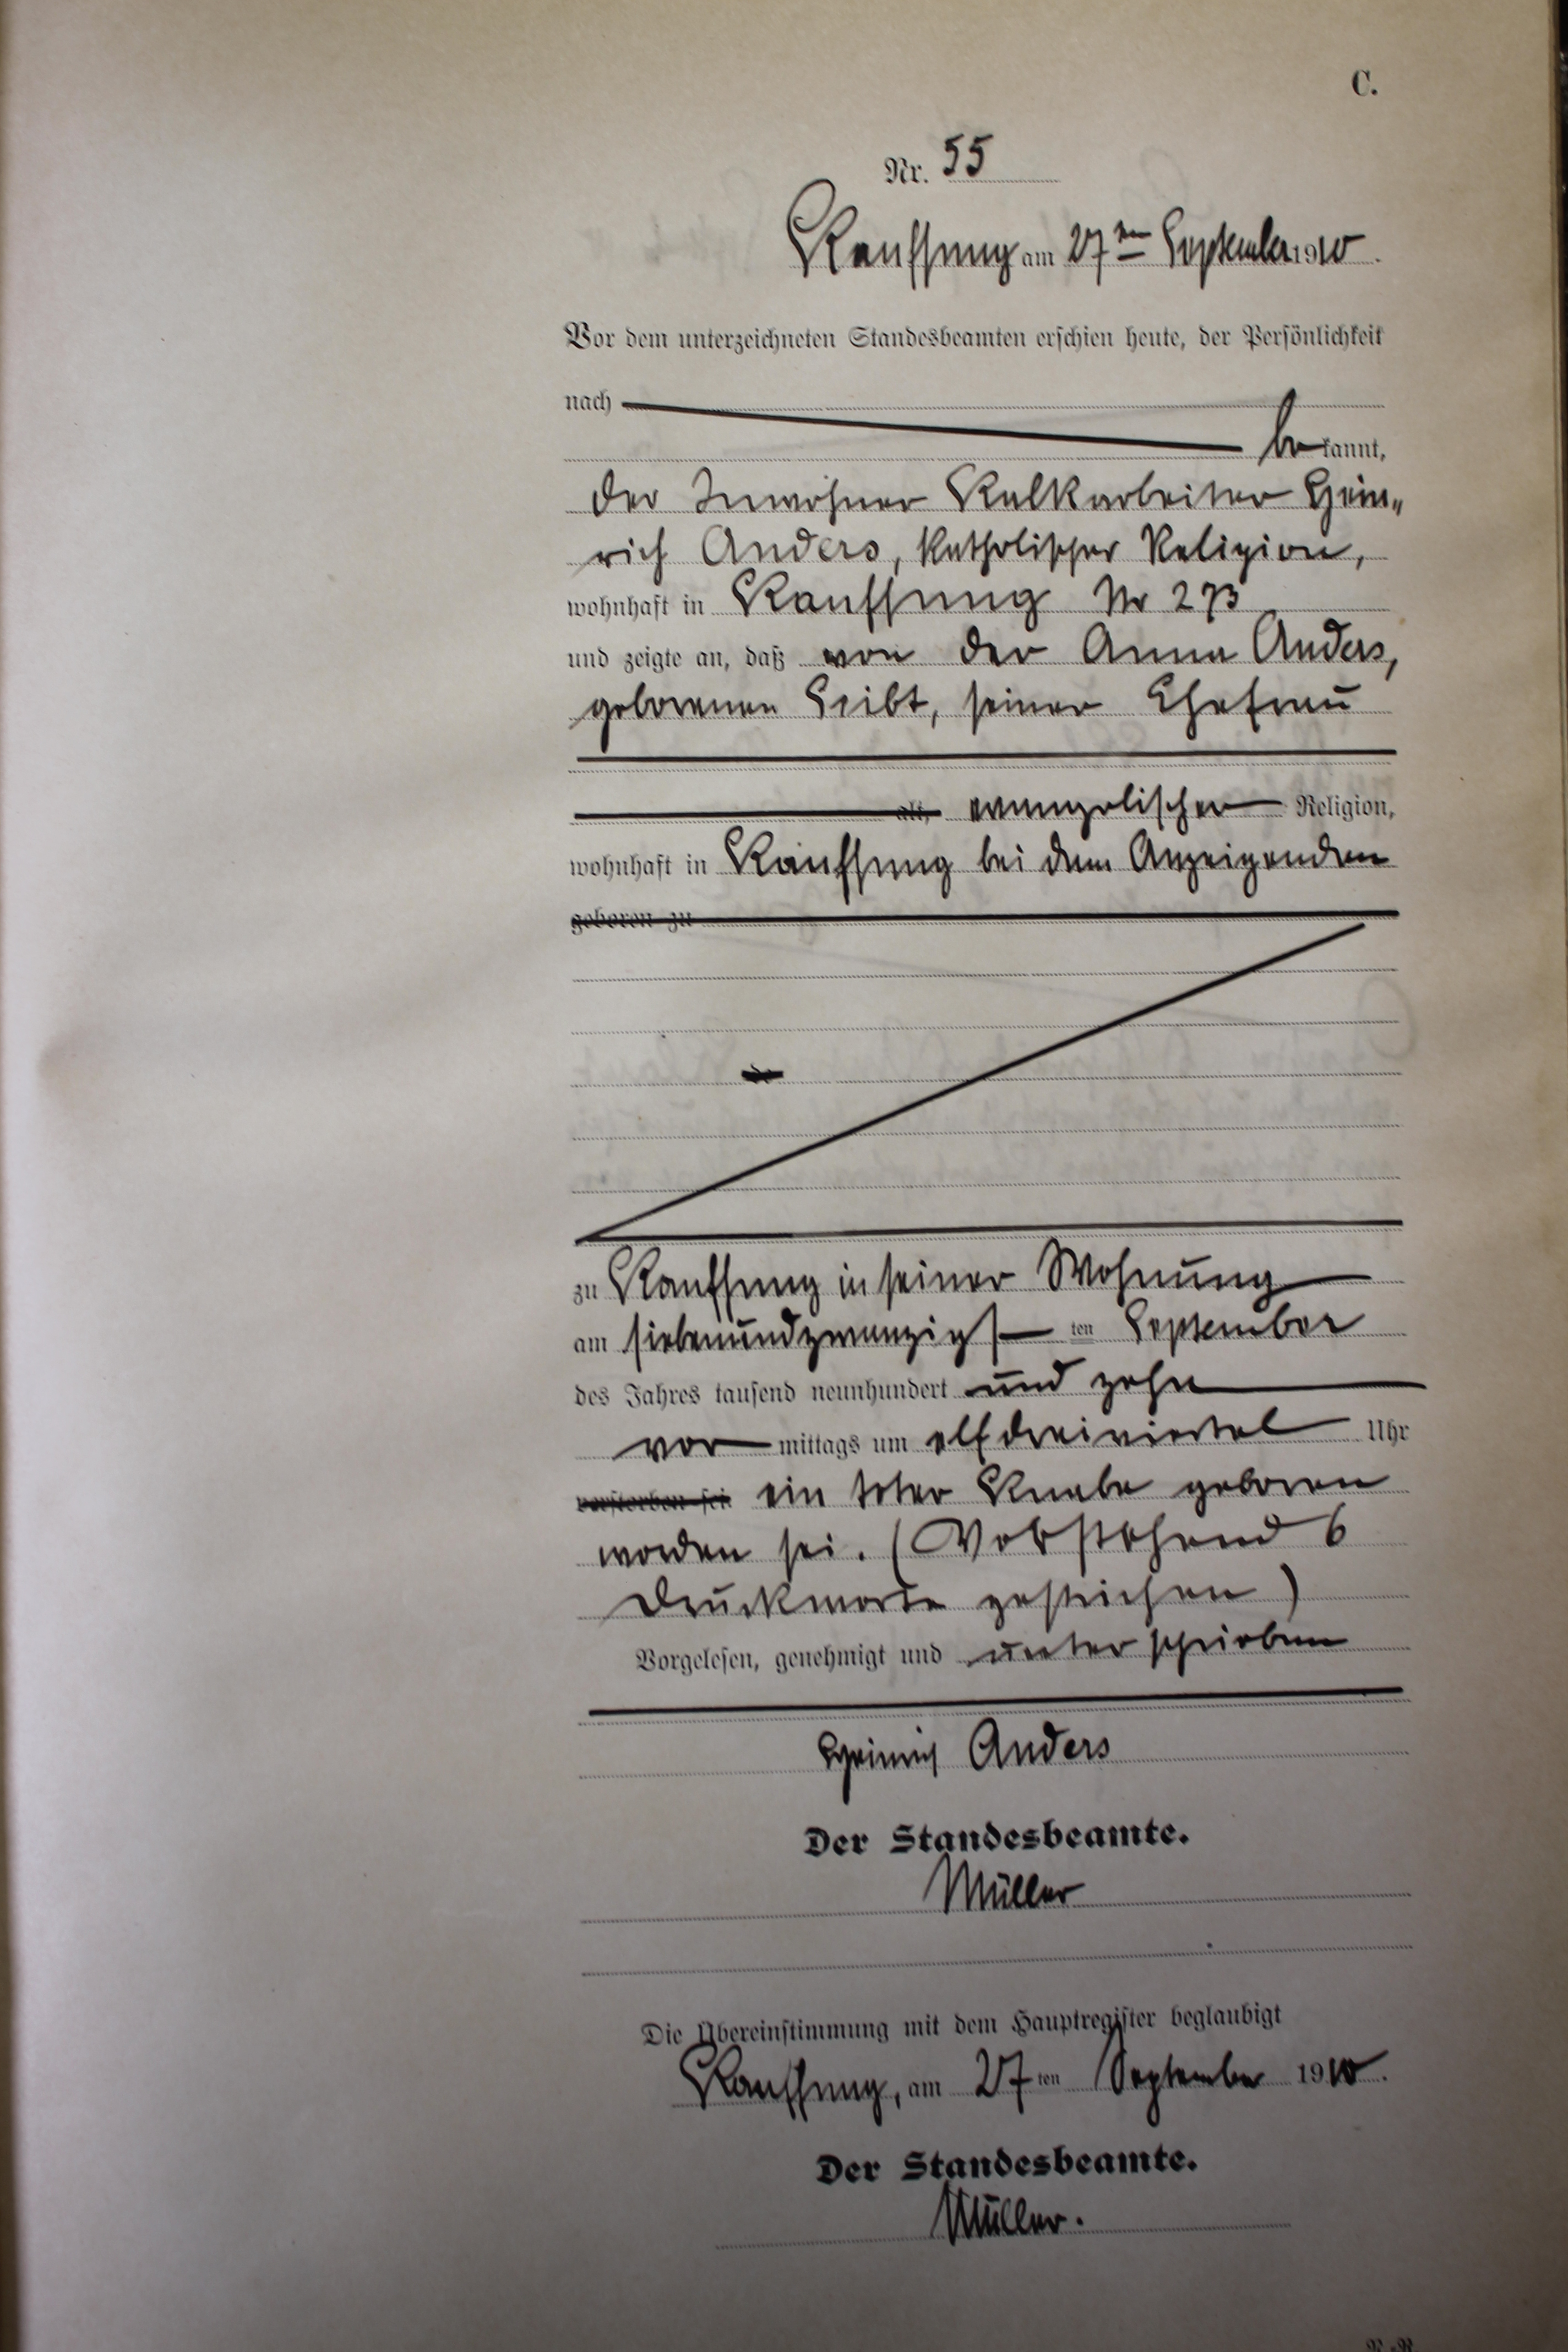 C.
Nr. 55
Kauffung am 27ten September 1910.
Vor dem unterzeichneten Standesbeamten erschien heute, der Persönlichkeit
nach
be kannt,
der Inwohner Kalkarbeiter Hein„
rich Anders, katholischer Religion,
wohnhaft in Kauffung Nr 273
und zeigte an, daß von der Anna Anders,
geborenen Seibt, seiner Ehefrau
alt, evangelischer Religion,
wohnhaft in Kauffung bei dem Anzeigenden
geboren zu
zu Kauffung in seiner Wohnung
am siebenundzwanzigs ten September
des Jahres tausend neunhundert und zehn
vor mittags um elfdreiviertel Uhr
verstorben sei ein toter Knabe geboren
worden sei. (Vorstehend 6
Druckworte gestrichen)
Vorgelesen, genehmigt und unterschrieben
Heinrich Anders
Der Standesbeamte.
Müller
Die Übereinstimmung mit dem Hauptregister beglaubigt
Kauffung, am 27ten September 1910.
Der Standesbeamte.
Müller.